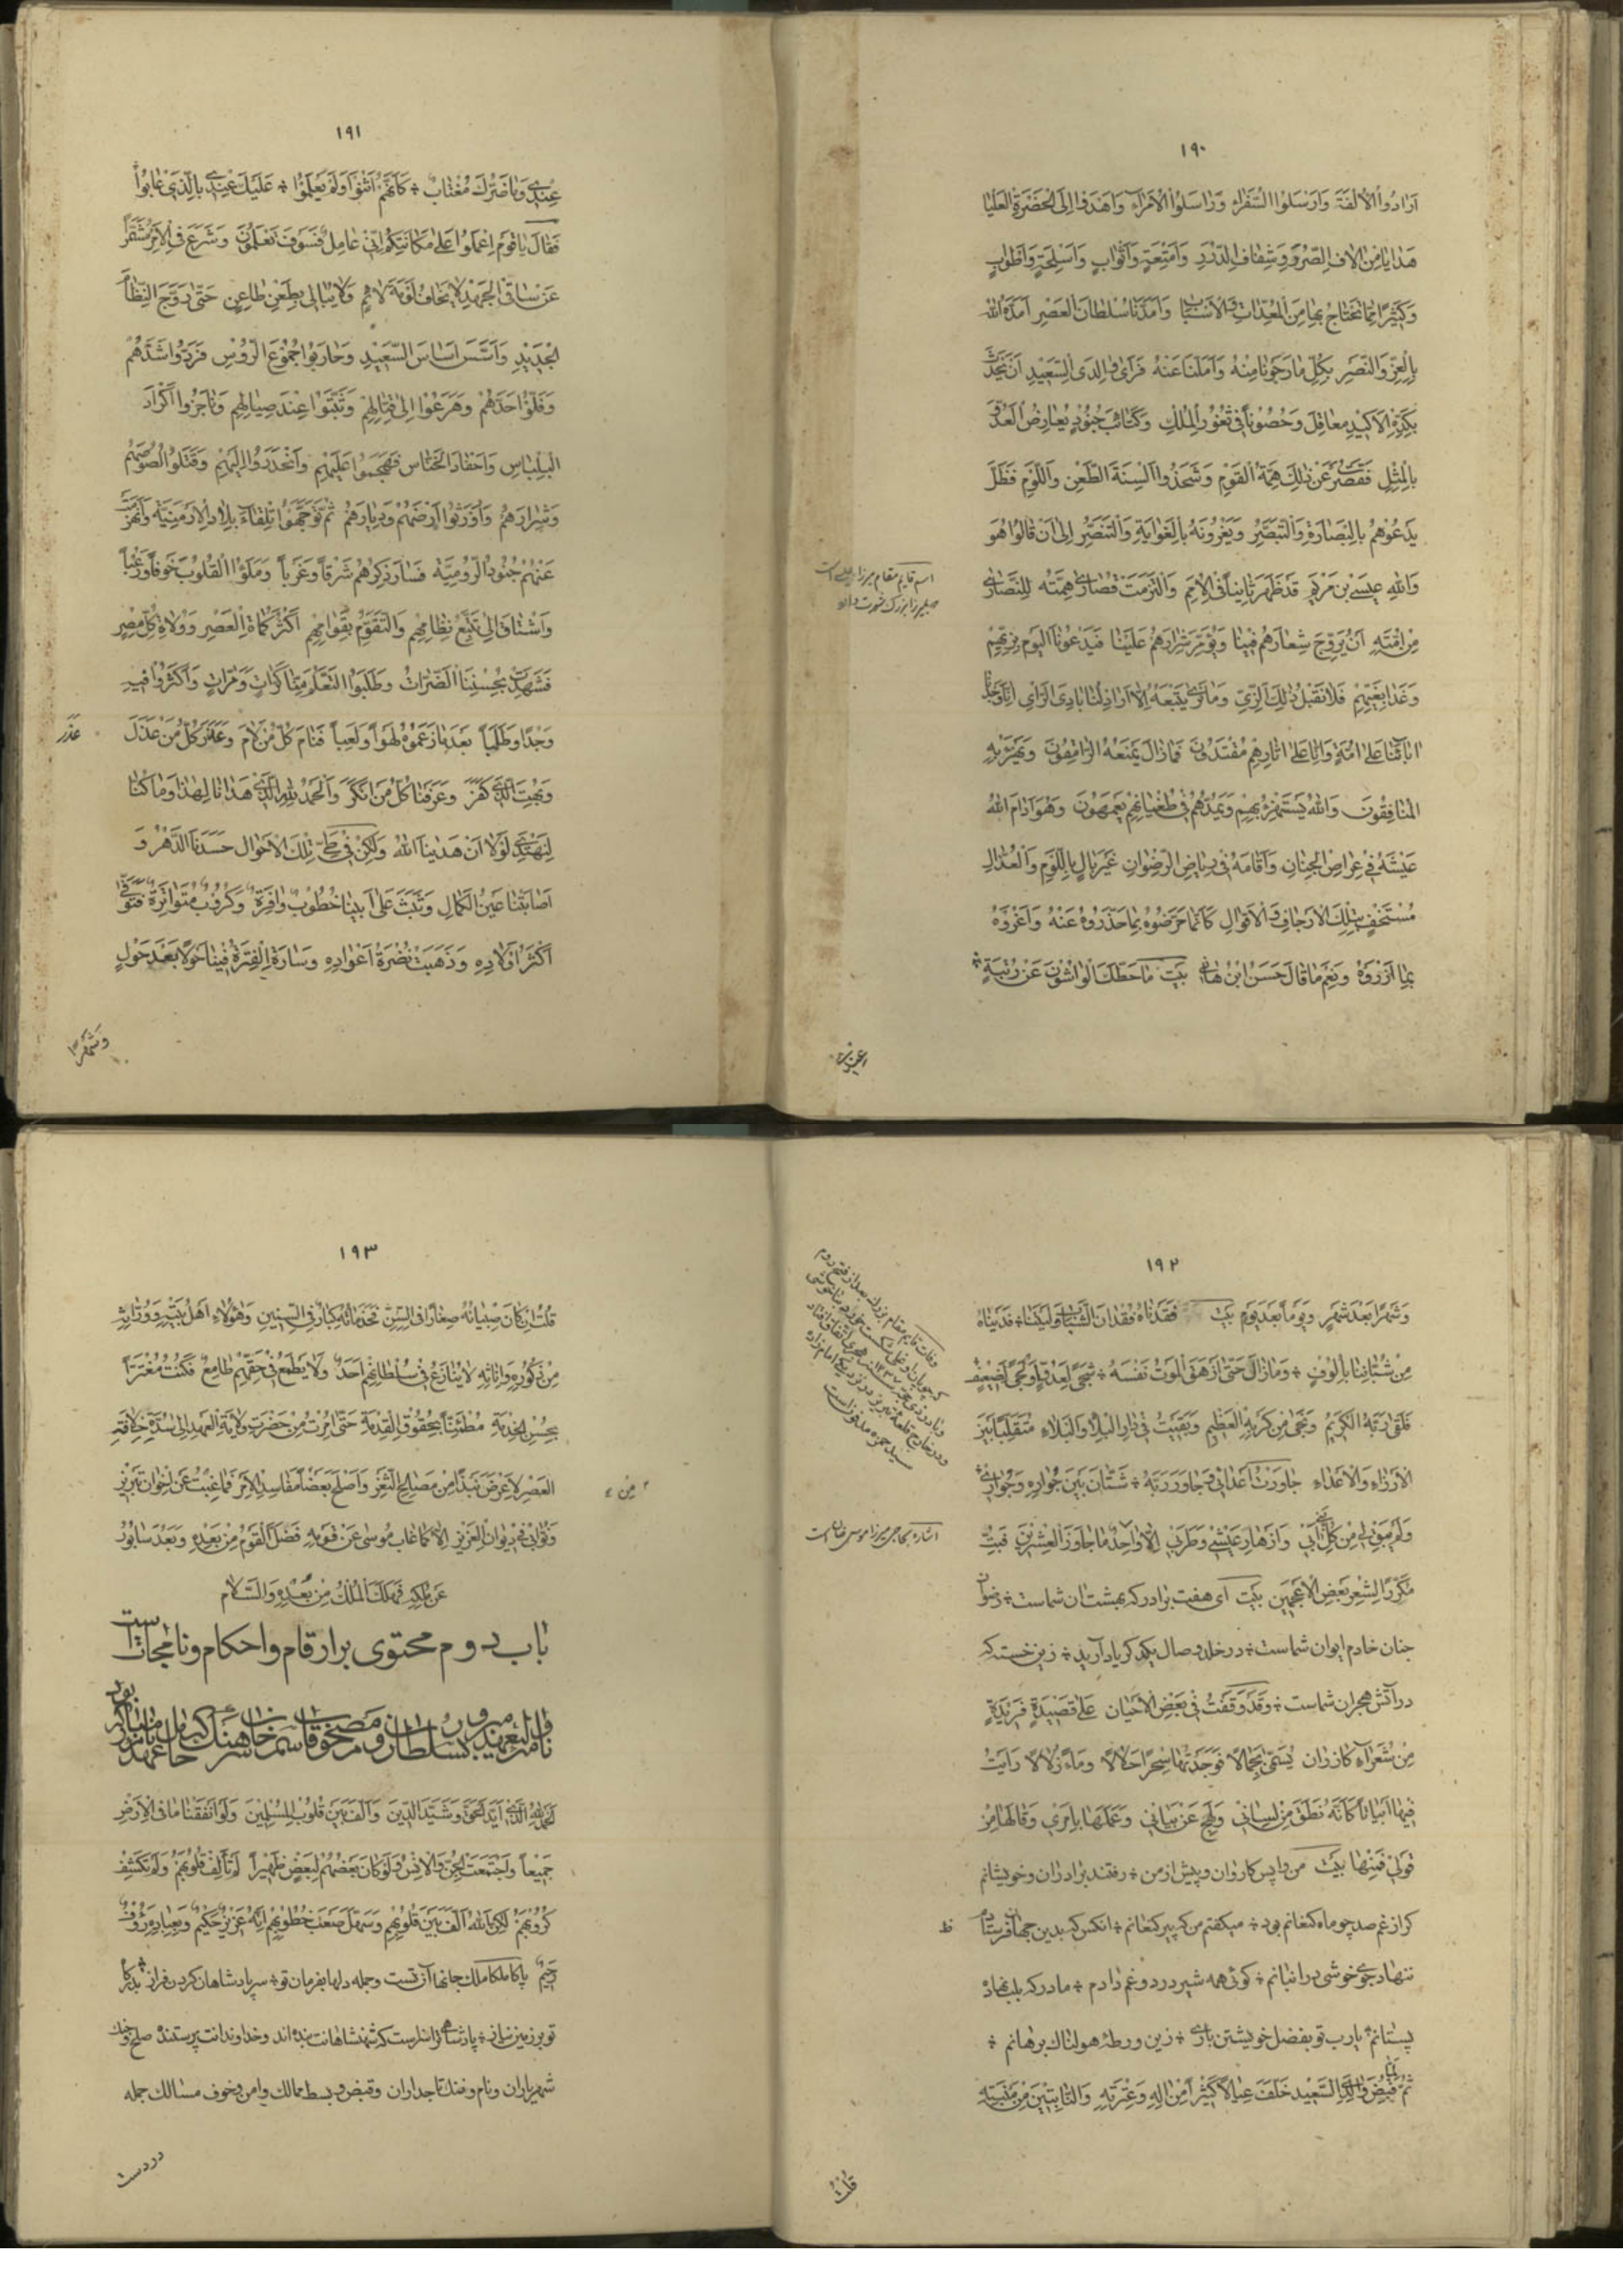 ١٩٠
اَرٰادُوا الاُلفَةَ وَاَرْسَلُوا السُّفَرٰاءَ وَرٰاسَلُوا الاُمَرٰاءَ وَاَهْدَوْا اِلَى الْحَضْرَةِ العَلْيٰا
هَدٰايٰا مِنْ الٰافِ الصُّرَرِ وَشِفٰافِ الدُّرَرِ وَاَمْتِعَةٍ وَاَثْوٰابٍ وَاَسْلِحَةٍ وَاَطْوٰابٍ
وَكَثِيرًا مِمّٰا نَحْتٰاجُ بِهٰا مِنَ الْمُعِدّٰاتِ وَالاَسْبٰابِ وَاَمَدَّنٰا سُلْطٰانُ الْعَصْرِ اَمَدَّهُ اللّٰهُ
بِالْعِزِّ وَالنَّصْرِ بِكُلِّ مٰا رَجَوْنٰا مِنْهُ وَاَمَلْنٰا عَنْهُ فَرَاٰى وٰالِدِىَ السَّعِيْدِ اَنْ يَتَّخِذَ
مَعٰاقِلَ وَحُصُوْنًا فِى ثُغُوْرِ الْمُلْكِ وَكَتٰائِبَ جُنُوْدٍ يُعٰارِضُ الْعَدُوَّ
بِالْمِثْلِ فَقَصُرَتْ عَنْ ذٰلِكَ هِمَّةُ الْقَوْمِ وَشَحَذُوا اَلْسِنَةَ الطَّعْنِ وَاللَّوْمِ فَظَلَّ
يَدْعُوْهُمْ بِالْبَصٰارَةِ وَالتَّبَصُّرِ وَيَغْرُوْنَهُ بِالْغَوٰايَةِ وَالتَّنَصُّرِ اِلٰى اَنْ قٰالُوا هُوَ
وَاللّٰهِ عِيْسَى بْنُ مَرْيَمَ قَدْ ظَهَرَ ثٰانِيًا فِى الْاُمَمِ وَالْتَزَمَتْ قُصٰارٰى هِمَّتِهِ لِلنَّصٰارٰى
مِنْ اُمَّتِهِ اَنْ يُرَوِّجَ شِعٰارَهُمْ فِيْنٰا وَيُؤَمِّرَ شِرٰارَهُمْ عَلَيْنٰا فَيَدْعُوْنٰا الْيَوْمَ بِزِيِّهِمْ
وَغَدًا بِغَيِّهِمْ فَلٰا نَقْبَلُ ذٰلِكَ الزِّىَّ وَمٰا نَرٰى يَتَّبِعُهُ اِلّٰا اَرٰاذِلُنٰا بٰادِىَ الرَّاْىِ اِنّٰا وَجَدْنٰا
اٰبٰائَنٰا عَلٰى اُمَّةٍ وَاِنّٰا عَلٰى اٰثٰارِهِمْ مُقْتَدُوْنَ فَمٰا زٰالَ يَمْنَعُهُ الْمُنٰافِقُوْنَ وَيَهْزَءُ بِهِ
الْمُنٰافِقُوْنَ وَاللّٰهُ يَسْتَهْزِئُ بِهِمْ وَيَمُدُّهُمْ فِى طُغْيٰانِهِمْ يَعْمَهُوْنَ وَهُوَ اَدٰامَ اللّٰهُ
عَيْشَهُ فِى عِرٰاصِ الْجِنٰانِ وَاَقٰامَهُ فِى رِيٰاضِ الرِّضْوٰانِ غَيْرُ بٰالٍ بِاللَّوْمِ وَالْعُذّٰالِ
مُسْتَخِفٌّ بِتِلْكَ الْاَرٰاجِيْفِ وَالْاَقْوٰالِ كَاَنَّمٰا حَرَّضُوْهُ بِمٰا حَذَّرُوْهُ عَنْهُ وَاَغْرَوْهُ
بِمٰا اَزْرَوْهُ وَنِعْمَ مٰا قٰالَ حَسَنُ ابْنُ هٰانِى بَيْت مٰا حَطَّكَ الْوٰاشُوْنَ عَنْ رُتْبَةٍ
اسم قايم مقام ميرزا عيسى است
ميرزا بزرگ شهرت دارد
١٩١
عِنْدِى وَمٰا ضَرَّكَ مُغْتٰابٌ ؞ كَاَنَّهُمْ اَثْنَوْا وَلَمْ يَعْلَمُوا ؞ عَلَيْكَ عِنْدِى بِالَّذِى عٰابُوا
فَقٰالَ يٰا قَوْمِ اعْمَلُوا عَلٰى مَكٰانَتِكُمْ اِنِّى عٰامِلٌ فَسَوْفَ تَعْلَمُوْنَ وَشَرَعَ فِى الْاَمْرِ مُشَمِّرًا
عَنْ سٰاقِ الْجَهْدِ لٰا يَخٰافُ لَوْمَةَ لٰائِمٍ وَلٰا يُبٰالِى بِطَعْنِ طٰاعِنٍ حَتّٰى رَوَّجَ النِّظٰامَ
الْجَدِيْدِ وَاَسَّسَ اَسٰاسَ السَّعِيْدِ وَحٰارَبُوا جُمُوْعَ الرُّوْسِ فَرَدُّوا اَشَدَّهُمْ
وَفَلُّوا حَدَّهُمْ وَهَرَعُوا اِلٰى قِتٰالِهِمْ وَثَبَتُوا عِنْدَ صِيٰالِهِمْ وَنٰاجَزُوا اَكْرٰادَ
الْبِلْبٰاسِ وَاَحْفٰادَ الْخَنّٰاسِ فَهَجَمُوا عَلَيْهِمْ وَانْحَدَرُوا اِلَيْهِمْ وَقَتَلُوا لُصُوْصَهُمْ
وَشِرٰارَهُمْ وَاُوْرِثُوا اَرْضَهُمْ وَدِيٰارَهُمْ ثُمَّ تَوَجَّهُوا تِلْقٰاءَ بِلٰادِ الْاَرْمَنِيَّةِ وَانْهَزَمَتْ
عَنْهُمْ جُنُوْدُ الرُّوْمِيَّةِ فَسٰارَ ذِكْرُهُمْ شَرْقًا وَغَرْبًا وَمَلَؤُا الْقُلُوْبَ خَوْفًا وَرُعْبًا
وَاشْتٰاقَ اِلٰى تَتَبُّعِ نِظٰامِهِمْ وَالتَّقَوُّمِ بِقَوٰامِهِمْ اَكْثَرُ كُمٰاةِ الْعَصْرِ وَوُلٰاةِ كُلِّ مِصْرٍ
فَشَهِدَتْ بِحُسْنِنَا الضَّرّٰاتُ وَطَلَبُوا التَّعَلُّمَ مِنّٰا كَرّٰاتٍ وَمَرّٰاتٍ وَاَكْثَرُوا فِيْهِ
وَجْدًا وَطَلَبًا بَعْدَ مٰا زَعَمُوْهُ لَهْوًا وَلَعِبًا فَنٰامَ كُلُّ مَنْ لٰامَ وَعَذَرَ كُلُّ مَنْ عَذَلَ
عَذَرَ
وَبُهِتَ الَّذِى كَفَرَ وَعَرَفَنٰا كُلُّ مَنْ اَنْكَرَ وَالْحَمْدُ لِلّٰهِ الَّذِى هَدٰانٰا لِهٰذٰا وَمٰا كُنّٰا
لِنَهْتَدِىَ لَوْلٰا اَنْ هَدٰينَا اللّٰهُ وَلٰكِنْ فِى طَىِّ تِلْكَ الْاَحْوٰالِ حَسَدَنَا الدَّهْرُ وَ
اَصٰابَتْنٰا عَيْنُ الْكَمٰالِ وَتَثِبُ عَلٰى اَبِيْنٰا خُطُوْبٌ وٰافِرَةٌ وَكُرُوْبٌ مُتَوٰاتِرَةٌ فَتُوُفِّىَ
اَكْثَرُ اَوْلٰادِهِ وَذَهَبَتْ نَضْرَةُ اَعْوٰادِهِ وَسٰارَةِ الْفِتْرَةُ فِيْنٰا حَوْلًا بَعْدَ حَوْلٍ
وَشَهْرًا
١٩٢
وَشَهْرًا بَعْدَ شَهْرٍ وَيَوْمًا بَعْدَ يَوْمٍ بَيْت فَقَدْنٰاهُ فُقْدٰانَ الشَّبٰابِ وَلَيْتَنٰا ؞ فَدَيْنٰاهُ
مِنْ شُبّٰانِنٰا بِاُلُوْفٍ ؞ وَمٰا زٰالَ حَتّٰى اَزْهَقَ الْمَوْتُ نَفْسَهُ ؞ شَجًى لِعَدُوٍّ اَوْ لَجًى لِضَعِيْفٍ
فَلَقٰى رَبَّهُ الْكَرِيْمَ وَنَجٰى مِنْ كَرْبِهِ الْعَظِيْمِ وَبَقِيْتُ فِى دٰارِ الْبَلٰاءِ وَالْبَلٰاءِ مُتَقَلِّبًا بَيْنَ
الْاَرْزٰاءِ وَالْاَعْدٰاءِ جٰاوَرْتُ اَعْدٰائِى وَجٰاوَرَ رَبَّهُ ؞ شَتّٰانَ بَيْنَ جِوٰارِهِ وَجِوٰارِى
وَلَمْ يَبْقَ لِى مِنْ كُلِّ بَنِى اَبِى وَاَزْهٰارِ عَيْشِى وَطَرَبِى اِلّٰا وٰاحِدٌ مٰا جٰاوَزَ الْعِشْرِيْنَ فَبِتُّ
مُكَرِّرًا لِشِعْرِ بَعْضِ الْاَعْجَمِيْنَ بَيْت اى هفت برادر كه بهشت ان شماست ؞ رضوان
جنان خادم ايوان شماست ؞ در خلد وصال يكدگر ياد آريد ؞ زين خسته كه
در آتش هجران شماست ؞ وَقَدْ وَقَفْتُ فِى بَعْضِ الْاَحْيٰانِ عَلٰى قَصِيْدَةٍ فَرِيْدَةٍ
مِنْ شُعَرٰاءِ كٰازِرٰانَ يُسَمّٰى بِجَمٰالًا فَوَجَدْتُهٰا سِحْرًا حَلٰالًا وَمٰاءً زُلٰالًا رَاَيْتُ
فِيْهٰا اَبْيٰاتًا كَاَنَّهُ نَطَقَ مِنْ لِسٰانِى وَلَهَجَ عَنْ بَيٰانِى وَعَمِلَهٰا بِاَمْرِى وَقٰالَهٰا مِنْ
قَوْلِى فَمِنْهٰا بَيْت من واپس كاروان و پيش از من ؞ رفتند برادران و خويشانم
كر از غم صد چو ماه كنعانم بود ؞ ميكفتم من كه پير كنعانم ؞ انكس كه بدين جهان فرستاد
ننهاد جوى خوشى در انبانم ؞ كوئى همه شير درد و غم دادم ؞ مادر كه بلب نهاد
پستانم ؞ يارب تو بفضل خويشتن بارى ؞ زين ورطهٔ هولناك برهانم ؞
ثُمَّ قُبِضَ وٰالِدِىَ السَّعِيْدِ خَلَّفَ عِيٰالًا كَثِيْرًا مِنْ اٰلِهِ وَعِتْرَتِهِ وَالثّٰابِتِيْنَ مِنْ
قُلْتُ
وفات قايم مقام بزرك بعد از فتح روم
سيد حمزه مدفونست
اشاره بحاجى ميرزا موسى خان است
١٩٣
قُلْتُ اِنْ كٰانَ صِبْيٰانُهُ صِغٰارًا فِى السِّنِّ فَخَدَمٰاتُهُ كِبٰارٌ فِى السِّنِيْنِ وَهٰؤُلٰاءِ اَهْلُ بَيْتِهِ وَوُرّٰاثِهِ
مِنْ ذُكُوْرِهِ وَاِنٰاثِهِ لٰا يُنٰازِعُ فِى سُلْطٰانِهِمْ اَحَدٌ وَلٰا يَطْمَعُ فِى حَقِّهِمْ طٰامِعٌ فَكُنْتُ مُغْتَرًّا
بِحُسْنِ الْخِدْمَةِ مُطْمَئِنًّا بِحُقُوْقِ الْقِدْمَةِ حَتّٰى اُمِرْتُ مِنْ حَضْرَتِ وِلٰايَةِ الْعَهْدِ اِلٰى سُدَّةِ خِلٰافَةِ
الْعَصْرِ لِاَعْرِضَ نَبْذًا مِنْ مَصٰالِحِ الثَّغْرِ وَاُصْلِحَ بَعْضًا مَفٰاسِدِ الْاَمْرِ فَمٰا غِبْتُ عَنْ اِخْوٰانِ تَبْرِيْزَ
مِنْ
وَنُوّٰابِى فِى دِيْوٰانِ الْعَزِيْزِ اِلّٰا كَمٰا غٰابَ مُوْسٰى عَنْ قَوْمِهِ فَضَلَّ الْقَوْمُ مِنْ بَعْدِهِ وَبَعُدَ سٰابُوْرُ
عَنْ مُلْكِهِ فَهَلَكَ الْمُلْكُ مِنْ بَعْدِهِ وَالسَّلٰام
باب دوم محتوى بر ارقام و احكام و نامجات است
اَلْحَمْدُ لِلّٰهِ الَّذِى اَيَّدَ الْحَقَّ وَشَيَّدَ الدِّيْنَ وَاَلَّفَ بَيْنَ قُلُوْبِ الْمُسْلِمِيْنَ وَلَوْ اَنْفَقْنٰا مٰا فِى الْاَرْضِ
جَمِيْعًا وَاجْتَمَعَتِ الْجِنُّ وَالْاِنْسُ وَلَوْ كٰانَ بَعْضُهُمْ لِبَعْضٍ ظَهِيْرًا لَمْ تَاْلَفْ قُلُوْبُهُمْ وَلَمْ تُكْشَفْ
كُرُوْبُهُمْ لٰكِنَّ اللّٰهَ اَلَّفَ بَيْنَ قُلُوْبِهِمْ وَسَهَّلَ صَعْبَ خُطُوْبِهِمْ اِنَّهُ عَزِيْزٌ حَكِيْمٌ وَبِعِبٰادِهِ رَؤُفٌ
رَحِيْمٌ پاكا ملكا ملك جانها آن تست و جمله دلها بفرمان تو ؞ سر پادشاهان كردن فراز ؞ بدركاه
تو بر زمين نياز ؞ پادشاهى ترا سزاست كه شهنشاهانت بنده‌اند و خداوندانت پرستنده صلح و جنك
شهرياران و نام و ننك تاجداران و قبض و بسط ممالك و امن و خوف مسالك جمله
در دست